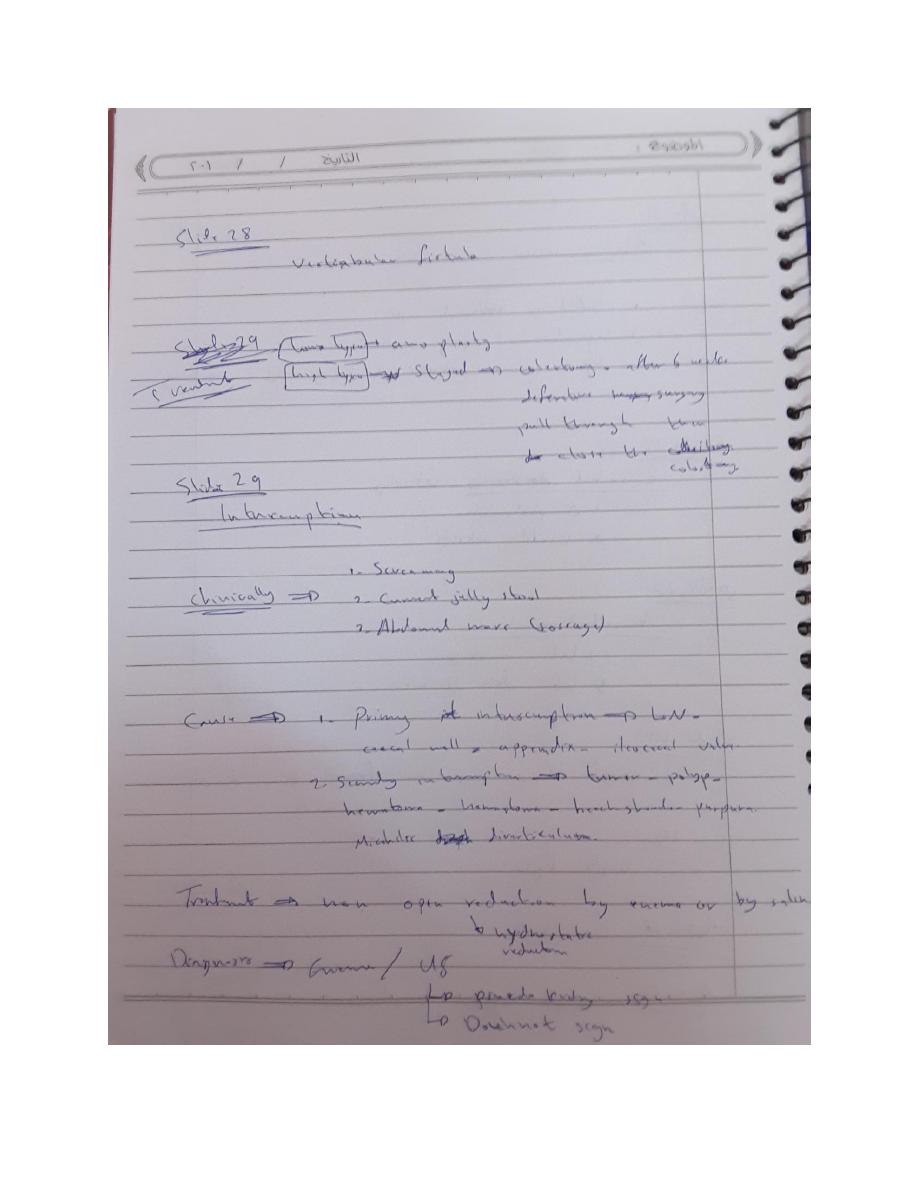 الموضوع :
التاريخ / / ٢٠١
Slide 28
Vestibular fistula
Slide 29
Low type → anoplasty
Treatment
high type → Staged → colostomy - after 6 weeks
definitive surgery
pull through then
close the colostomy
Slide 29
Intussusception
Clinically ⇒ 1. Screaming
2. Current jelly stool
3. Abdominal mass (sossage)
Cause ⇒ 1. Primary intussusception → L.N -
caecal wall - appendix - ileocecal valve
2. Secondary intussusception ⇒ tumor - polyp -
hematoma - - purpura.
diverticulum.
Treatment ⇒ non open reduction by enema or by saline
↳ hydrostatic
reduction
Diagnosis ⇒ Enema / US
↳ pseudo kidney sign
↳ Doughnot sign